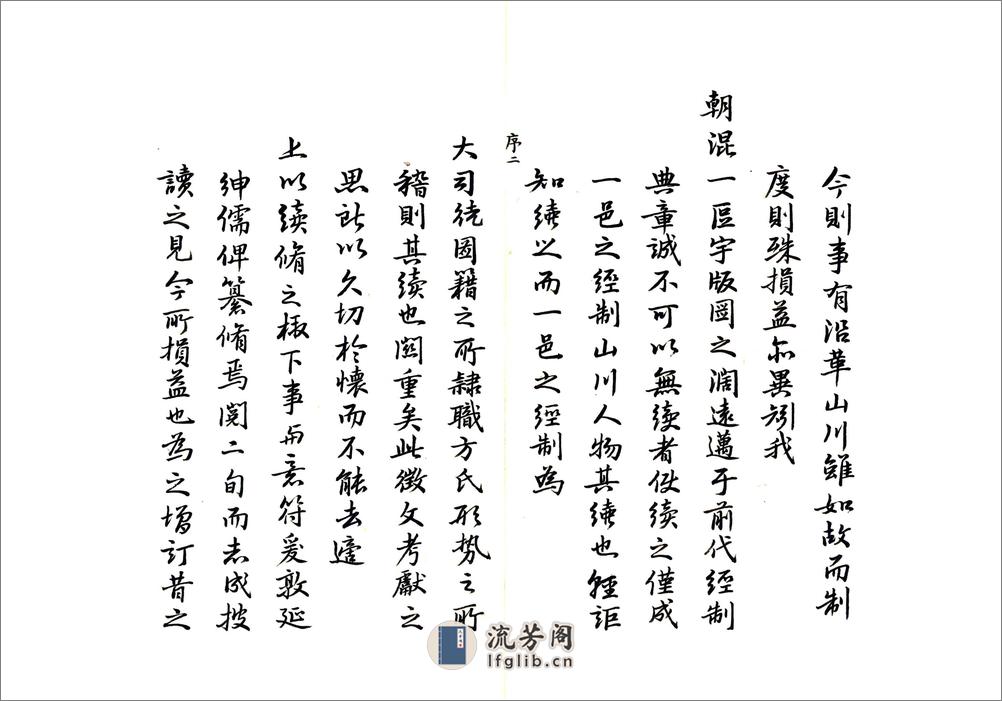 今則事有沿革山川雖如故而制
度則殊損益亦異矧我
朝混一區宇版圖之濶遠邁于前代經制
典章誠不可以無續者但續之僅成
一邑之經制山川人物其續也輕詎
知續之而一邑之經制為
序二
大司徒圖籍之所隷職方氏形勢之所
稽則其續也關重矣此徵文考獻之
思所以久切於懷而不能去適
上以續脩之檄下事与意符爰敦延
紳儒俾纂脩焉閱二旬而志成披
讀之見今所損益也為之增訂昔之
流芳阁
lfglib.cn